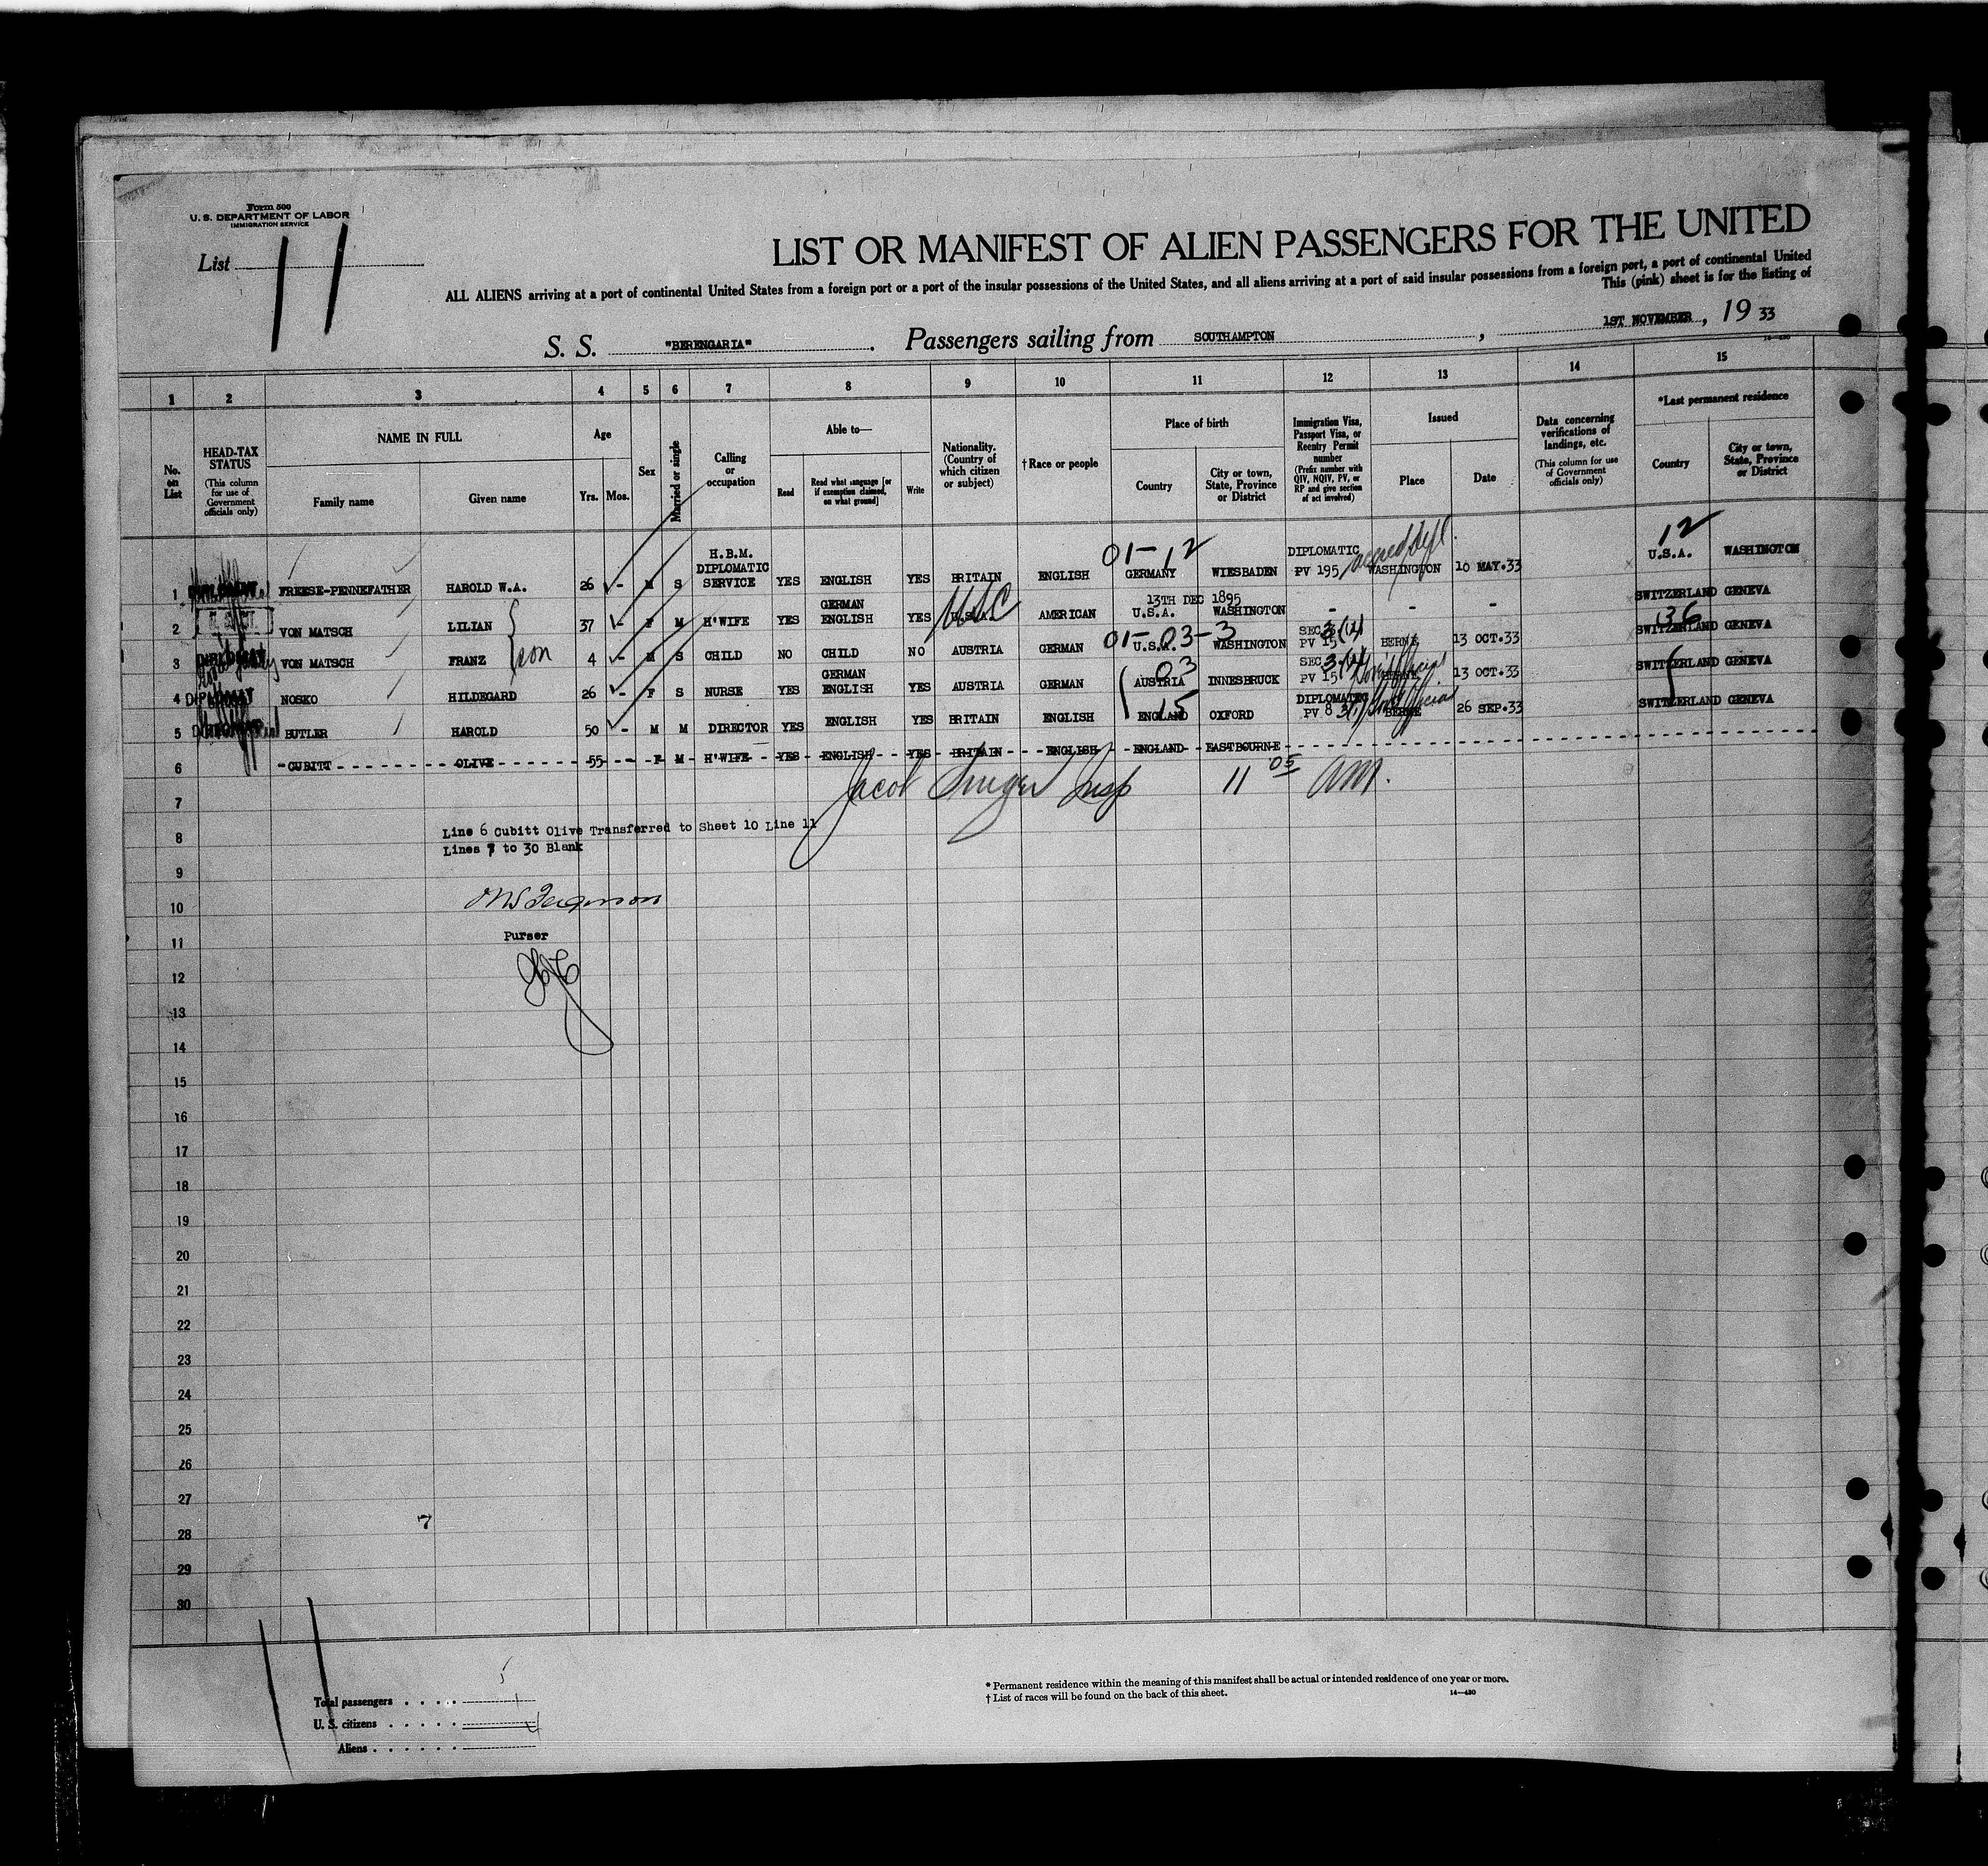 Form 500
U. S. DEPARTMENT OF LABOR
IMMIGRATION SERVICE
List 11
LIST OR MANIFEST OF ALIEN PASSENGERS FOR THE UNITED
ALL ALIENS arriving at a port of continental United States from a foreign port or a port of the insular possessions of the United States, and all aliens arriving at a port of said insular possessions from a foreign port, a port of continental United
This (pink) sheet is for the listing of
S. S. "BERENGARIA". Passengers sailing from SOUTHAMPTON, 1ST NOVEMBER, 19 33
14—430
1 2 3 4 5 6 7 8 9 10 11 12 13 14 15
No. on List
HEAD-TAX STATUS
(This column for use of Government officials only)
NAME IN FULL
Family name
Given name
Age
Yrs. Mos.
Sex
Married or single
Calling or occupation
Able to—
Read
Read what language [or if exemption claimed, on what ground]
Write
Nationality. (Country of which citizen or subject)
† Race or people
Place of birth
Country
City or town, State, Province or District
Immigration Visa, Passport Visa, or Reentry Permit number
(Prefix number with QIV, NQIV, PV, or RP and give section of act involved)
Issued
Place
Date
Data concerning verifications of landings, etc.
(This column for use of Government officials only)
*Last permanent residence
Country
City or town, State, Province or District
01-12
12
H.B.M. DIPLOMATIC
1 FREESE-PENNEFATHER HAROLD W.A. 26 - M S SERVICE YES ENGLISH YES BRITAIN ENGLISH GERMANY WIESBADEN DIPLOMATIC PV 195 WASHINGTON 10 MAY.33 U.S.A. WASHINGTON
GERMAN 13TH DEC 1895
2 VON MATSCH LILIAN 37 - F M H'WIFE YES ENGLISH YES U.S.A. USC AMERICAN U.S.A. WASHINGTON - - - SWITZERLAND GENEVA
01-03-3
36
3 DIPLOMAT VON MATSCH FRANZ son 4 - M S CHILD NO CHILD NO AUSTRIA GERMAN U.S.A. WASHINGTON SEC 3(1) PV 15 BERNE 13 OCT.33 SWITZERLAND GENEVA
GERMAN 03
4 DIPLOMAT NOSKO HILDEGARD 26 - F S NURSE YES ENGLISH YES AUSTRIA GERMAN AUSTRIA INNESBRUCK SEC 3(1) PV 15 13 OCT.33 SWITZERLAND GENEVA
15
5 BUTLER HAROLD 50 - M M DIRECTOR YES ENGLISH YES BRITAIN ENGLISH ENGLAND OXFORD DIPLOMATIC PV 8 BERNE 26 SEP.33 SWITZERLAND GENEVA
6 CUBITT OLIVE 55 - F M H'WIFE YES ENGLISH YES BRITAIN ENGLISH ENGLAND EASTBOURNE
7 Jacob Singer Insp 11 05 AM.
8 Line 6 Cubitt Olive Transferred to Sheet 10 Line 11
Lines 7 to 30 Blank
9
10
11 Purser
12
13
14
15
16
17
18
19
20
21
22
23
24
25
26
27
7
28
29
30
Total passengers . . . . . 5
U. S. citizens . . . . . 1
Aliens . . . . . . 4
* Permanent residence within the meaning of this manifest shall be actual or intended residence of one year or more.
† List of races will be found on the back of this sheet.
14—430